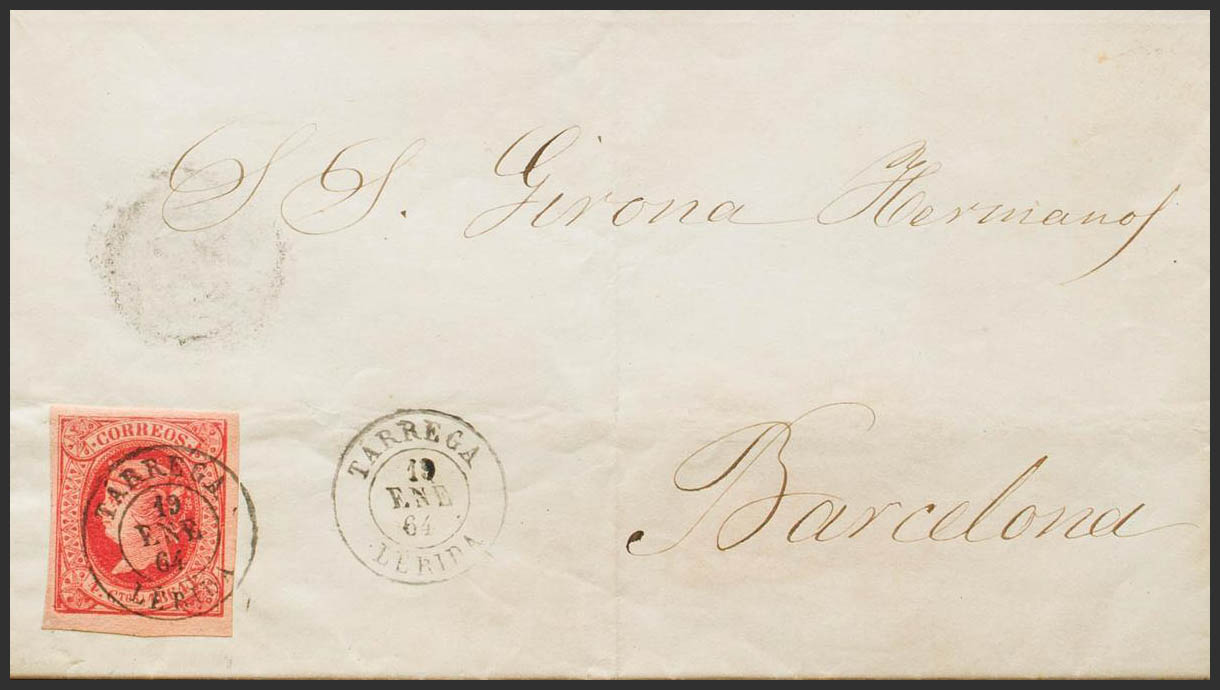 S S. Girona Hermanos
Barcelona
CORREOS
TARREGA
19
ENE
64
LERIDA
TARREGA
19
ENE
64
LERIDA